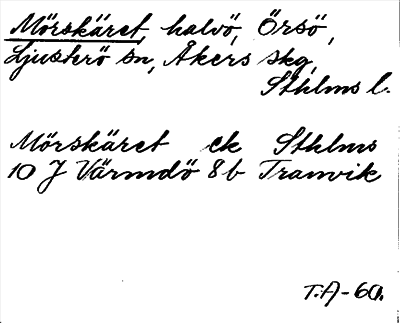 Mörskäret, halvö, Örsö,
Ljusterö sn, Åkers skg,
Sthlms l.
Mörskäret ek Sthlms
10 J Värmdö 8b Tranvik
T.A-60.